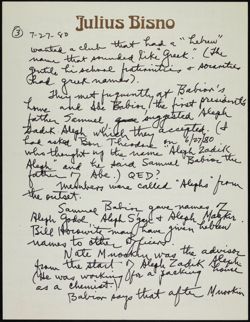 Julius Bisno
③ 7-27-80
wanted a club that had a "hebrew
name that sounded like Greek." (The
gentile hi school fraternities & sororities
had greek names).
They met frequently at Babior's
home and Abe Babior (the first president's
father Samuel suggested Aleph
Zadik Aleph which they accepted. (I
had asked Ben Theodore on 6/27/80
who thought up the name 'Aleph Zadik
Aleph' and he said Samuel Babior the
father of Abe.) QED?
Members were called 'Alephs' from
the outset.
Samuel Babior gave names of
Aleph Godol Aleph S'gan & Aleph Mazkir.
Bill Horowitz may have given hebrew
names to other officers.
Nate Mnookin was the advisor
from the start of Aleph Zadik Aleph
(He was working for a packing house
as a chemist)
Babior says that after Mnookin